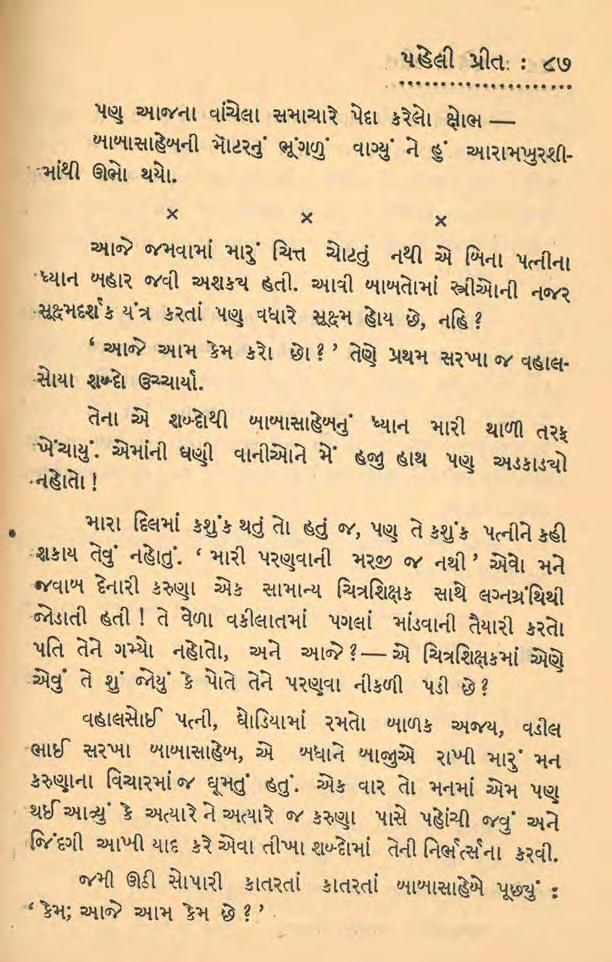 પહેલી પ્રીત : ૮૭
પણ આજના વાંચેલા સમાચારે પેદા કરેલો ક્ષોભ —
બાબાસાહેબની મૉટરનું ભૂંગળું વાગ્યું ને હું આરામખુરશી-
માંથી ઊભો થયો.
× × ×
આજે જમવામાં મારું ચિત્ત ચોટતું નથી એ બિના પત્નીના
ધ્યાન બહાર જવી અશક્ય હતી. આવી બાબતોમાં સ્ત્રીઓની નજર
સૂક્ષ્મદર્શક યંત્ર કરતાં પણ વધારે સૂક્ષ્મ હોય છે, નહિ ?
‘ આજે આમ કેમ કરો છો ? ’ તેણે પ્રથમ સરખા જ વહાલ-
સોયા શબ્દો ઉચ્ચાર્યા.
તેના એ શબ્દોથી બાબાસાહેબનું ધ્યાન મારી થાળી તરફ
ખેંચાયું. એમાંની ઘણી વાનીઓને મેં હજી હાથ પણ અડકાડ્યો
નહોતો !
મારા દિલમાં કશુંક થતું તો હતું જ, પણ તે કશુંક પત્નીને કહી
શકાય તેવું નહોતું. ‘ મારી પરણવાની મરજી જ નથી ’ એવો મને
જવાબ દેનારી કરુણા એક સામાન્ય ચિત્રશિક્ષક સાથે લગ્નગ્રંથિથી
જોડાતી હતી ! તે વેળા વકીલાતમાં પગલાં માંડવાની તૈયારી કરતો
પતિ તેને ગમ્યો નહોતો, અને આજે ? — એ ચિત્રશિક્ષકમાં એણે
એવું તે શું જોયું કે પોતે તેને પરણવા નીકળી પડી છે ?
વહાલસોઈ પત્ની, ઘોડિયામાં રમતો બાળક અજય, વડીલ
ભાઈ સરખા બાબાસાહેબ, એ બધાને બાજીએ રાખી મારું મન
કરુણાના વિચારમાં જ ઘૂમતું હતું. એક વાર તો મનમાં એમ પણ
થઈ આવ્યું કે અત્યારે ને અત્યારે જ કરુણા પાસે પહોંચી જવું અને
જિંદગી આખી યાદ કરે એવા તીખા શબ્દોમાં તેની નિર્ભર્ત્સના કરવી.
જમી ઊઠી સોપારી કાતરતાં કાતરતાં બાબાસાહેબે પૂછ્યું :
‘ કેમ; આજે આમ કેમ છે ? ’